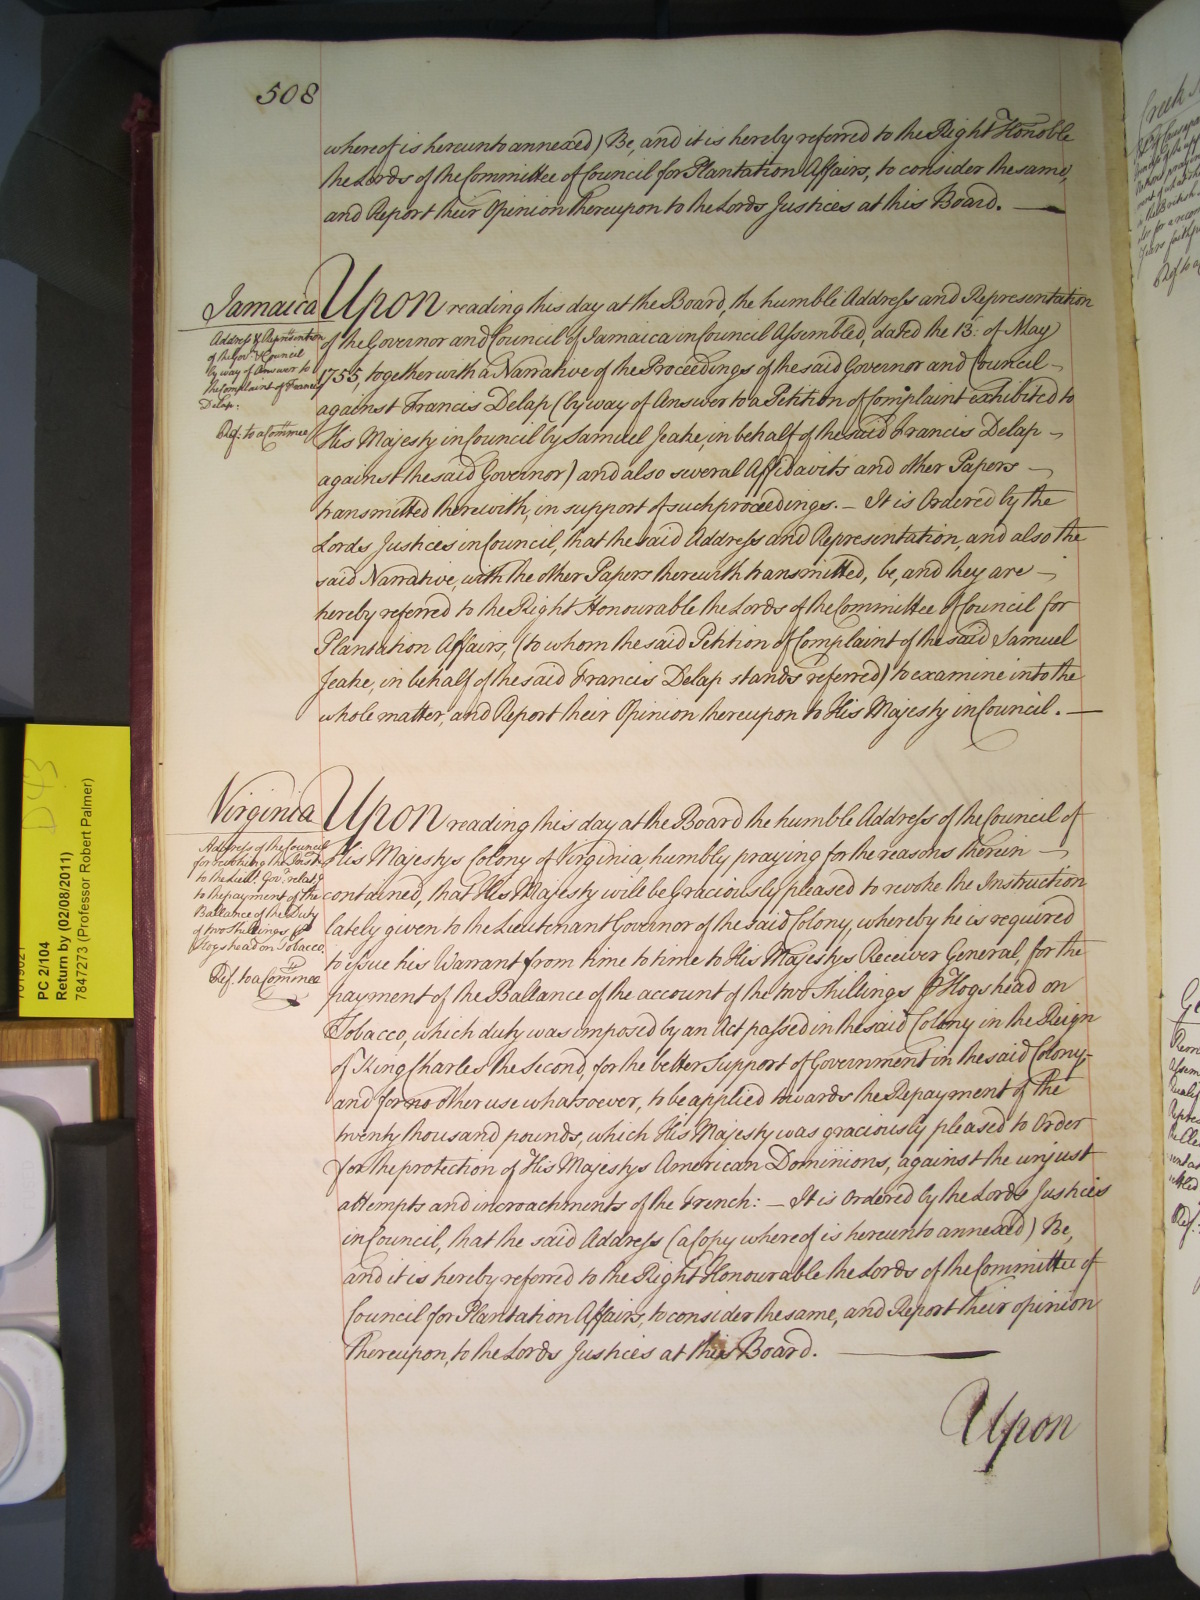 508
whereof is hereunto annexed) Be, and it is hereby referred to the Right Honoble
the Lords of the Committee of Council for Plantation Affairs, to consider the same,
and Report their Opinion thereupon to the Lords Justices at this Board. —
Jamaica
Address & Reprsention
of the Govr. & Council
by way of Answer to
the Complaint of Francis
Delap:
Ref: to a Commee
Upon reading this day at the Board, the humble Address and Representation
of the Governor and Council of Jamaica in Council Assembled, dated the 13: of May
1755, together with a Narrative of the Proceedings of the said Governor and Council —
against Francis Delap (by way of Answer to a Petition of Complaint exhibited to
His Majesty in Council by Samuel Jeake, in behalf of the said Francis Delap —
against the said Governor) and also several Affidavits and other Papers —
transmitted therewith, in support of such proceedings. — It is Ordered by the
Lords Justices in Council, that the said Address and Representation, and also the
said Narrative, with the other Papers therewith transmitted, be, and they are —
hereby referred to the Right Honourable the Lords of the Committee of Council for
Plantation Affairs, (to whom the said Petition of Complaint of the said Samuel
Jeake, in behalf of the said Francis Delap stands referred) to examine into the
whole matter, and Report their Opinion thereupon to His Majesty in Council. —
Virginia
Address of the Council
for revoking the Inst
to the Lieut. Govr. relatg
to the payment of the
Ballance of the Duty
of two Shillings ⅌
Hogshead on Tobacco.
Ref. to a Commee
Upon reading this day at the Board the humble Address of the Council of
His Majestys Colony of Virginia humbly praying for the reasons therein —
contained, that His Majesty will be Graciously pleased to revoke the Instruction
lately given to the Lieutenant Governor of the said Colony, whereby he is required
to issue his Warrant from time to time to His Majestys Receiver General, for the
payment of the Ballance of the account of the two Shillings ⅌ Hogshead on
Tobacco, which duty was imposed by an Act passed in the said Colony in the Reign
of King Charles the Second, for the better Support of Government in the said Colony,
and for no other use whatsoever, to be applied towards the Repayment of the
twenty thousand pounds, which His Majesty was graciously pleased to Order
for the protection of His Majestys American Dominions, against the unjust
attempts and incroachments of the French: — It is Ordered by the Lords Justices
in Council, that the said Address (a Copy whereof is hereunto annexed) Be,
and it is hereby referred to the Right Honourable the Lords of the Committee of
Council for Plantation Affairs, to consider the same, and Report their opinion
thereupon, to the Lords Justices at this Board. —
Upon
D 43
PC 2/104
Return by (02/08/2011)
7847273 (Professor Robert Palmer)